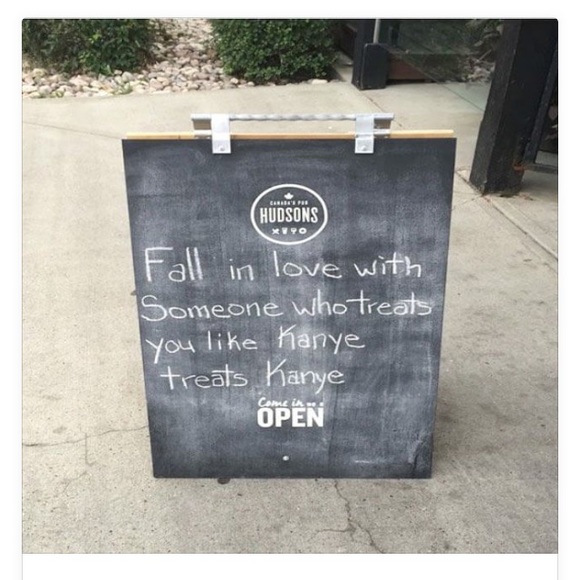 CANADA'S PUB
HUDSONS
Fall in love with
Someone who treats
you like Kanye
treats Kanye
Come in we're
OPEN